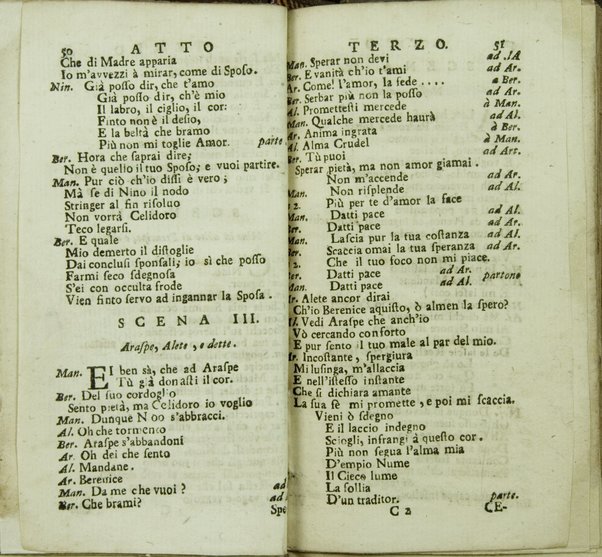 50 ATTO
Che di Madre apparia
Io m'avvezzi à mirar, come di Sposo.
Nin. Già posso dir, che t'amo
Già posso dir, ch'è mio
Il labro, il ciglio, il cor:
Finto non è il desio,
E la beltà che bramo
Più non mi toglie Amor. parte
Ber. Hora che saprai dire;
Non è quello il tuo Sposo; e vuoi partire.
Man. Pur ciò ch'io dissi è vero;
Mà se di Nino il nodo
Stringer al fin risoluo
Non vorrà Celidoro
Teco legarsi.
Ber. E quale
Mio demerto il distoglie
Dai conclusi sponsali; io sì che posso
Farmi seco sdegnosa
S'ei con occulta frode
Vien finto servo ad ingannar la Sposa.
SCENA III.
Araspe, Alete, e dette.
Man. EI ben sà, che ad Araspe
Tù già donasti il cor.
Ber. Del suo cordoglio
Sento pietà, ma Celidoro io voglio
Man. Dunque Nino s'abbracci.
Al. Oh che tormento
Ber. Araspe s'abbandoni
Ar. Oh dei che sento
Al. Mandane.
Ar. Berenice
Man. Da me che vuoi? ad
Ber. Che brami? ad
Spe
TERZO. 51
Man. Sperar non devi ad Al
Ber. E vanità ch'io t'ami ad Ar.
Ar. Come! l'amor, la fede .... a Ber.
Ber. Serbar più non la posso ad Ar.
Al. Promettesti mercede à Man.
Man. Qualche mercede haurà ad Al.
Ar. Anima ingrata à Ber.
Al. Alma Crudel à Man.
Ber. Tù puoi ad Ar.
Sperar pietà, ma non amor giamai.
Non m'accende ad Ar.
Man. Non risplende ad Al.
2. Più per te d'amor la face
Man. Datti pace ad Al.
Ber. Datti pace ad Ar.
Man. Lascia pur la tua costanza ad Al.
Ber. Scaccia omai la tua speranza ad Ar.
2. Che il tuo foco non mi piace.
Ber. Datti pace ad Ar. partono
Man. Datti pace ad Al.
Ar. Alete ancor dirai
Ch'io Berenice aquisto, ò almen la spero?
Al. Vedi Araspe che anch'io
Vò cercando conforto
E pur sento il tuo male al par del mio.
Ar. Incostante, spergiura
Mi lusinga, m'allaccia
E nell'istesso instante
Che si dichiara amante
La sua fè mi promette, e poi mi scaccia.
Vieni ò sdegno
E il laccio indegno
Sciogli, infrangi à questo cor.
Più non segua l'alma mia
D'empio Nume
Il Cieco lume
La follia
D'un traditor. parte.
C 2 CE-